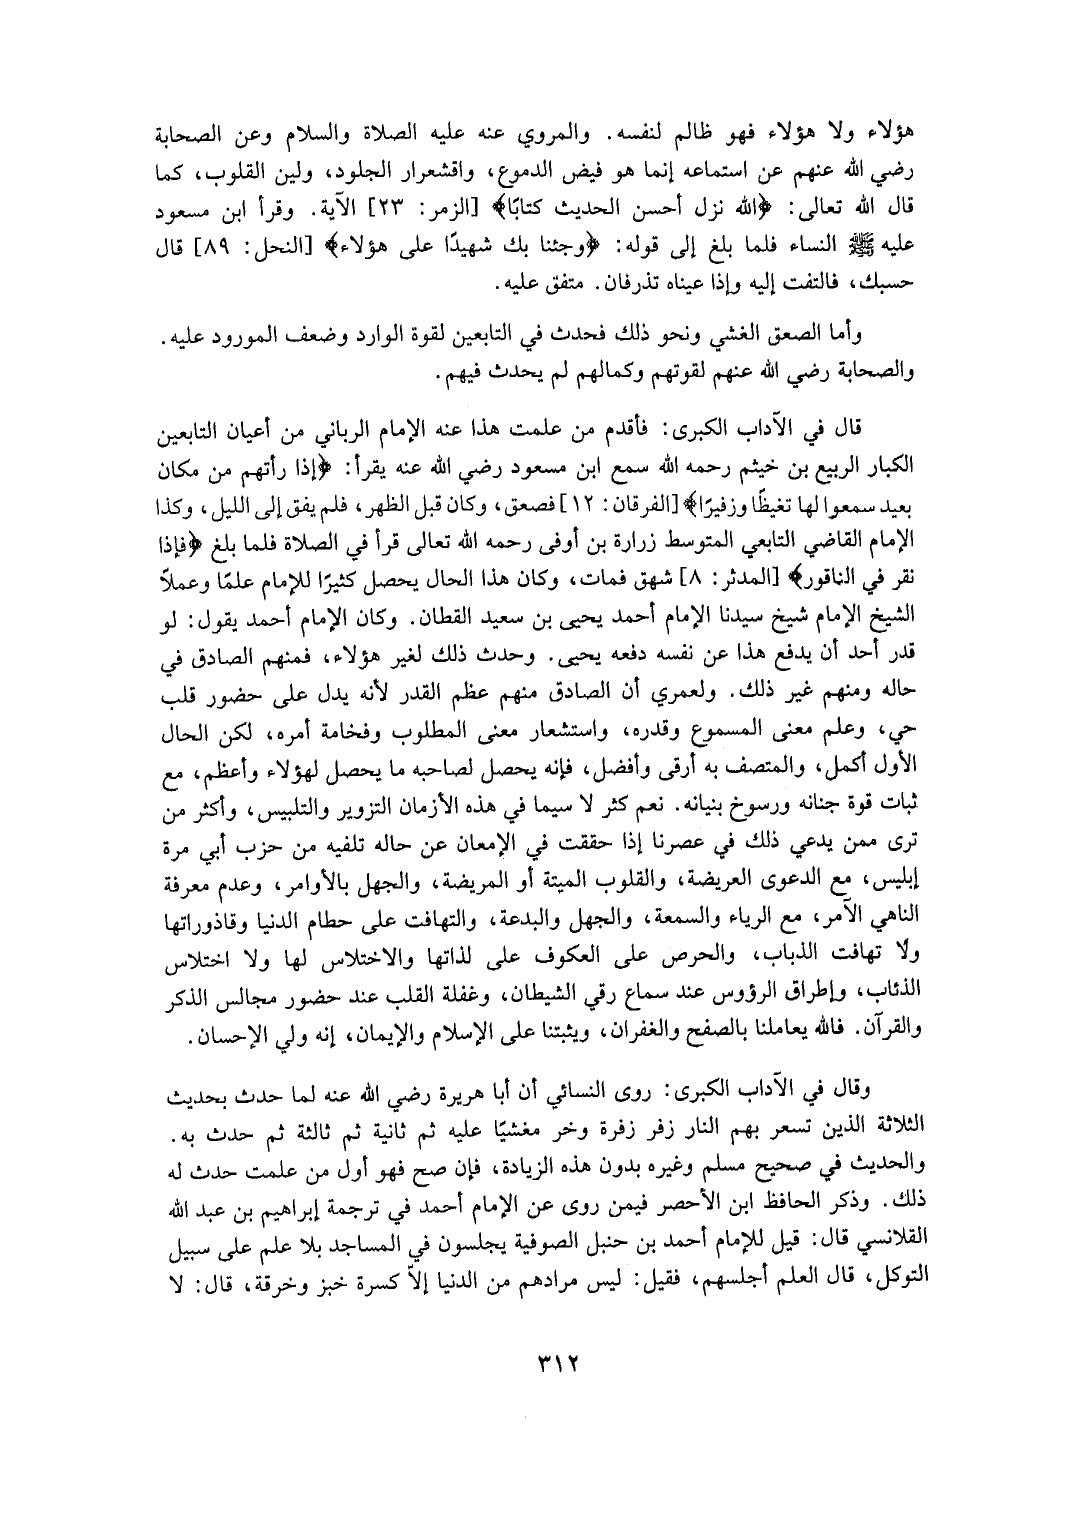 هؤلاء ولا هؤلاء فهو ظالم لنفسه. والمروي عنه عليه الصلاة والسلام وعن الصحابة
رضي الله عنهم عن استماعه إنما هو فيض الدموع، واقشعرار الجلود، ولين القلوب، كما
قال الله تعالى: ﴿الله نزل أحسن الحديث كتابًا﴾ [الزمر: ٢٣] الآية. وقرأ ابن مسعود
عليه ﷺ النساء فلما بلغ إلى قوله: ﴿وجئنا بك شهيدًا على هؤلاء﴾ [النحل: ٨٩] قال
حسبك، فالتفت إليه وإذا عيناه تذرفان. متفق عليه.
وأما الصعق الغشي ونحو ذلك فحدث في التابعين لقوة الوارد وضعف المورود عليه.
والصحابة رضي الله عنهم لقوتهم وكمالهم لم يحدث فيهم.
قال في الآداب الكبرى: فأقدم من علمت هذا عنه الإمام الرباني من أعيان التابعين
الكبار الربيع بن خيثم رحمه الله سمع ابن مسعود رضي الله عنه يقرأ: ﴿إذا رأتهم من مكان
بعيد سمعوا لها تغيظًا وزفيرًا﴾ [الفرقان: ١٢] فصعق، وكان قبل الظهر، فلم يفق إلى الليل، وكذا
الإمام القاضي التابعي المتوسط زرارة بن أوفى رحمه الله تعالى قرأ في الصلاة فلما بلغ ﴿فإذا
نقر في الناقور﴾ [المدثر: ٨] شهق فمات، وكان هذا الحال يحصل كثيرًا للإمام علمًا وعملاً
الشيخ الإمام شيخ سيدنا الإمام أحمد يحيى بن سعيد القطان. وكان الإمام أحمد يقول: لو
قدر أحد أن يدفع هذا عن نفسه دفعه يحيى. وحدث ذلك لغير هؤلاء، فمنهم الصادق في
حاله ومنهم غير ذلك. ولعمري أن الصادق منهم عظم القدر لأنه يدل على حضور قلب
حي، وعلم معنى المسموع وقدره، واستشعار معنى المطلوب وفخامة أمره، لكن الحال
الأول أكمل، والمتصف به أرقى وأفضل، فإنه يحصل لصاحبه ما يحصل لهؤلاء وأعظم، مع
ثبات قوة جنانه ورسوخ بنيانه. نعم كثر لا سيما في هذه الأزمان التزوير والتلبيس، وأكثر من
ترى ممن يدعي ذلك في عصرنا إذا حققت في الإمعان عن حاله تلفيه من حزب أبي مرة
إبليس، مع الدعوى العريضة، والقلوب الميتة أو المريضة، والجهل بالأوامر، وعدم معرفة
الناهي الآمر، مع الرياء والسمعة، والجهل والبدعة، والتهافت على حطام الدنيا وقاذوراتها
ولا تهافت الذباب، والحرص على العكوف على لذاتها والاختلاس لها ولا اختلاس
الذئاب، وإطراق الرؤوس عند سماع رقي الشيطان، وغفلة القلب عند حضور مجالس الذكر
والقرآن. فالله يعاملنا بالصفح والغفران، ويثبتنا على الإسلام والإيمان، إنه ولي الإحسان.
وقال في الآداب الكبرى: روى النسائي أن أبا هريرة رضي الله عنه لما حدث بحديث
الثلاثة الذين تسعر بهم النار زفر زفرة وخر مغشيًا عليه ثم ثانية ثم ثالثة ثم حدث به.
والحديث في صحيح مسلم وغيره بدون هذه الزيادة، فإن صح فهو أول من علمت حدث له
ذلك. وذكر الحافظ ابن الأحصر فيمن روى عن الإمام أحمد في ترجمة إبراهيم بن عبد الله
القلانسي قال: قيل للإمام أحمد بن حنبل الصوفية يجلسون في المساجد بلا علم على سبيل
التوكل، قال العلم أجلسهم، فقيل: ليس مرادهم من الدنيا إلاّ كسرة خبز وخرقة، قال: لا
٣١٢